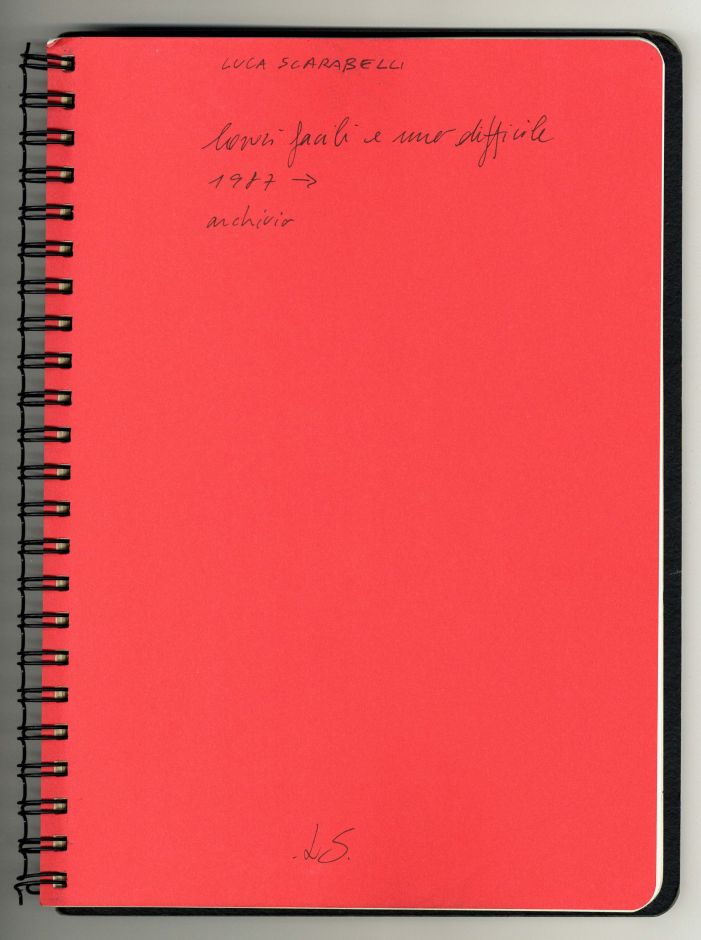 LUCA SCARABELLI
lavori facili e uno difficile
1987 →
archivio
.LS.